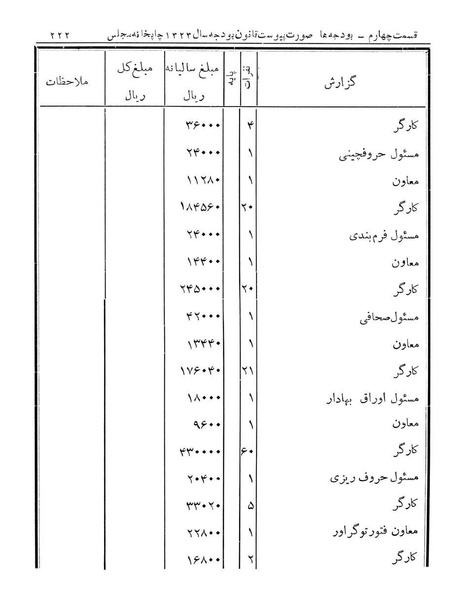 قسمت چهارم – بودجه‌ها صورت پیوست قانون بودجه سال ۱۳۲۳ چاپخانه مجلس ۲۲۲
گزارش نفرات پایه مبلغ سالیانه ریال مبلغ کل ریال ملاحظات
کارگر ۴ ۳۶۰۰۰
مسئول حروفچینی ۱ ۲۴۰۰۰
معاون ۱ ۱۱۲۸۰
کارگر ۲۰ ۱۸۴۵۶۰
مسئول فرم‌بندی ۱ ۲۴۰۰۰
معاون ۱ ۱۴۴۰۰
کارگر ۲۰ ۲۴۵۰۰۰
مسئول صحافی ۱ ۴۲۰۰۰
معاون ۱ ۱۳۴۴۰
کارگر ۲۱ ۱۷۶۰۴۰
مسئول اوراق بهادار ۱ ۱۸۰۰۰
معاون ۱ ۹۶۰۰
کارگر ۶۰ ۴۳۰۰۰۰
مسئول حروف ریزی ۱ ۲۰۴۰۰
کارگر ۵ ۳۳۰۲۰
معاون فتورتوگراور ۱ ۲۲۸۰۰
کارگر ۲ ۱۶۸۰۰